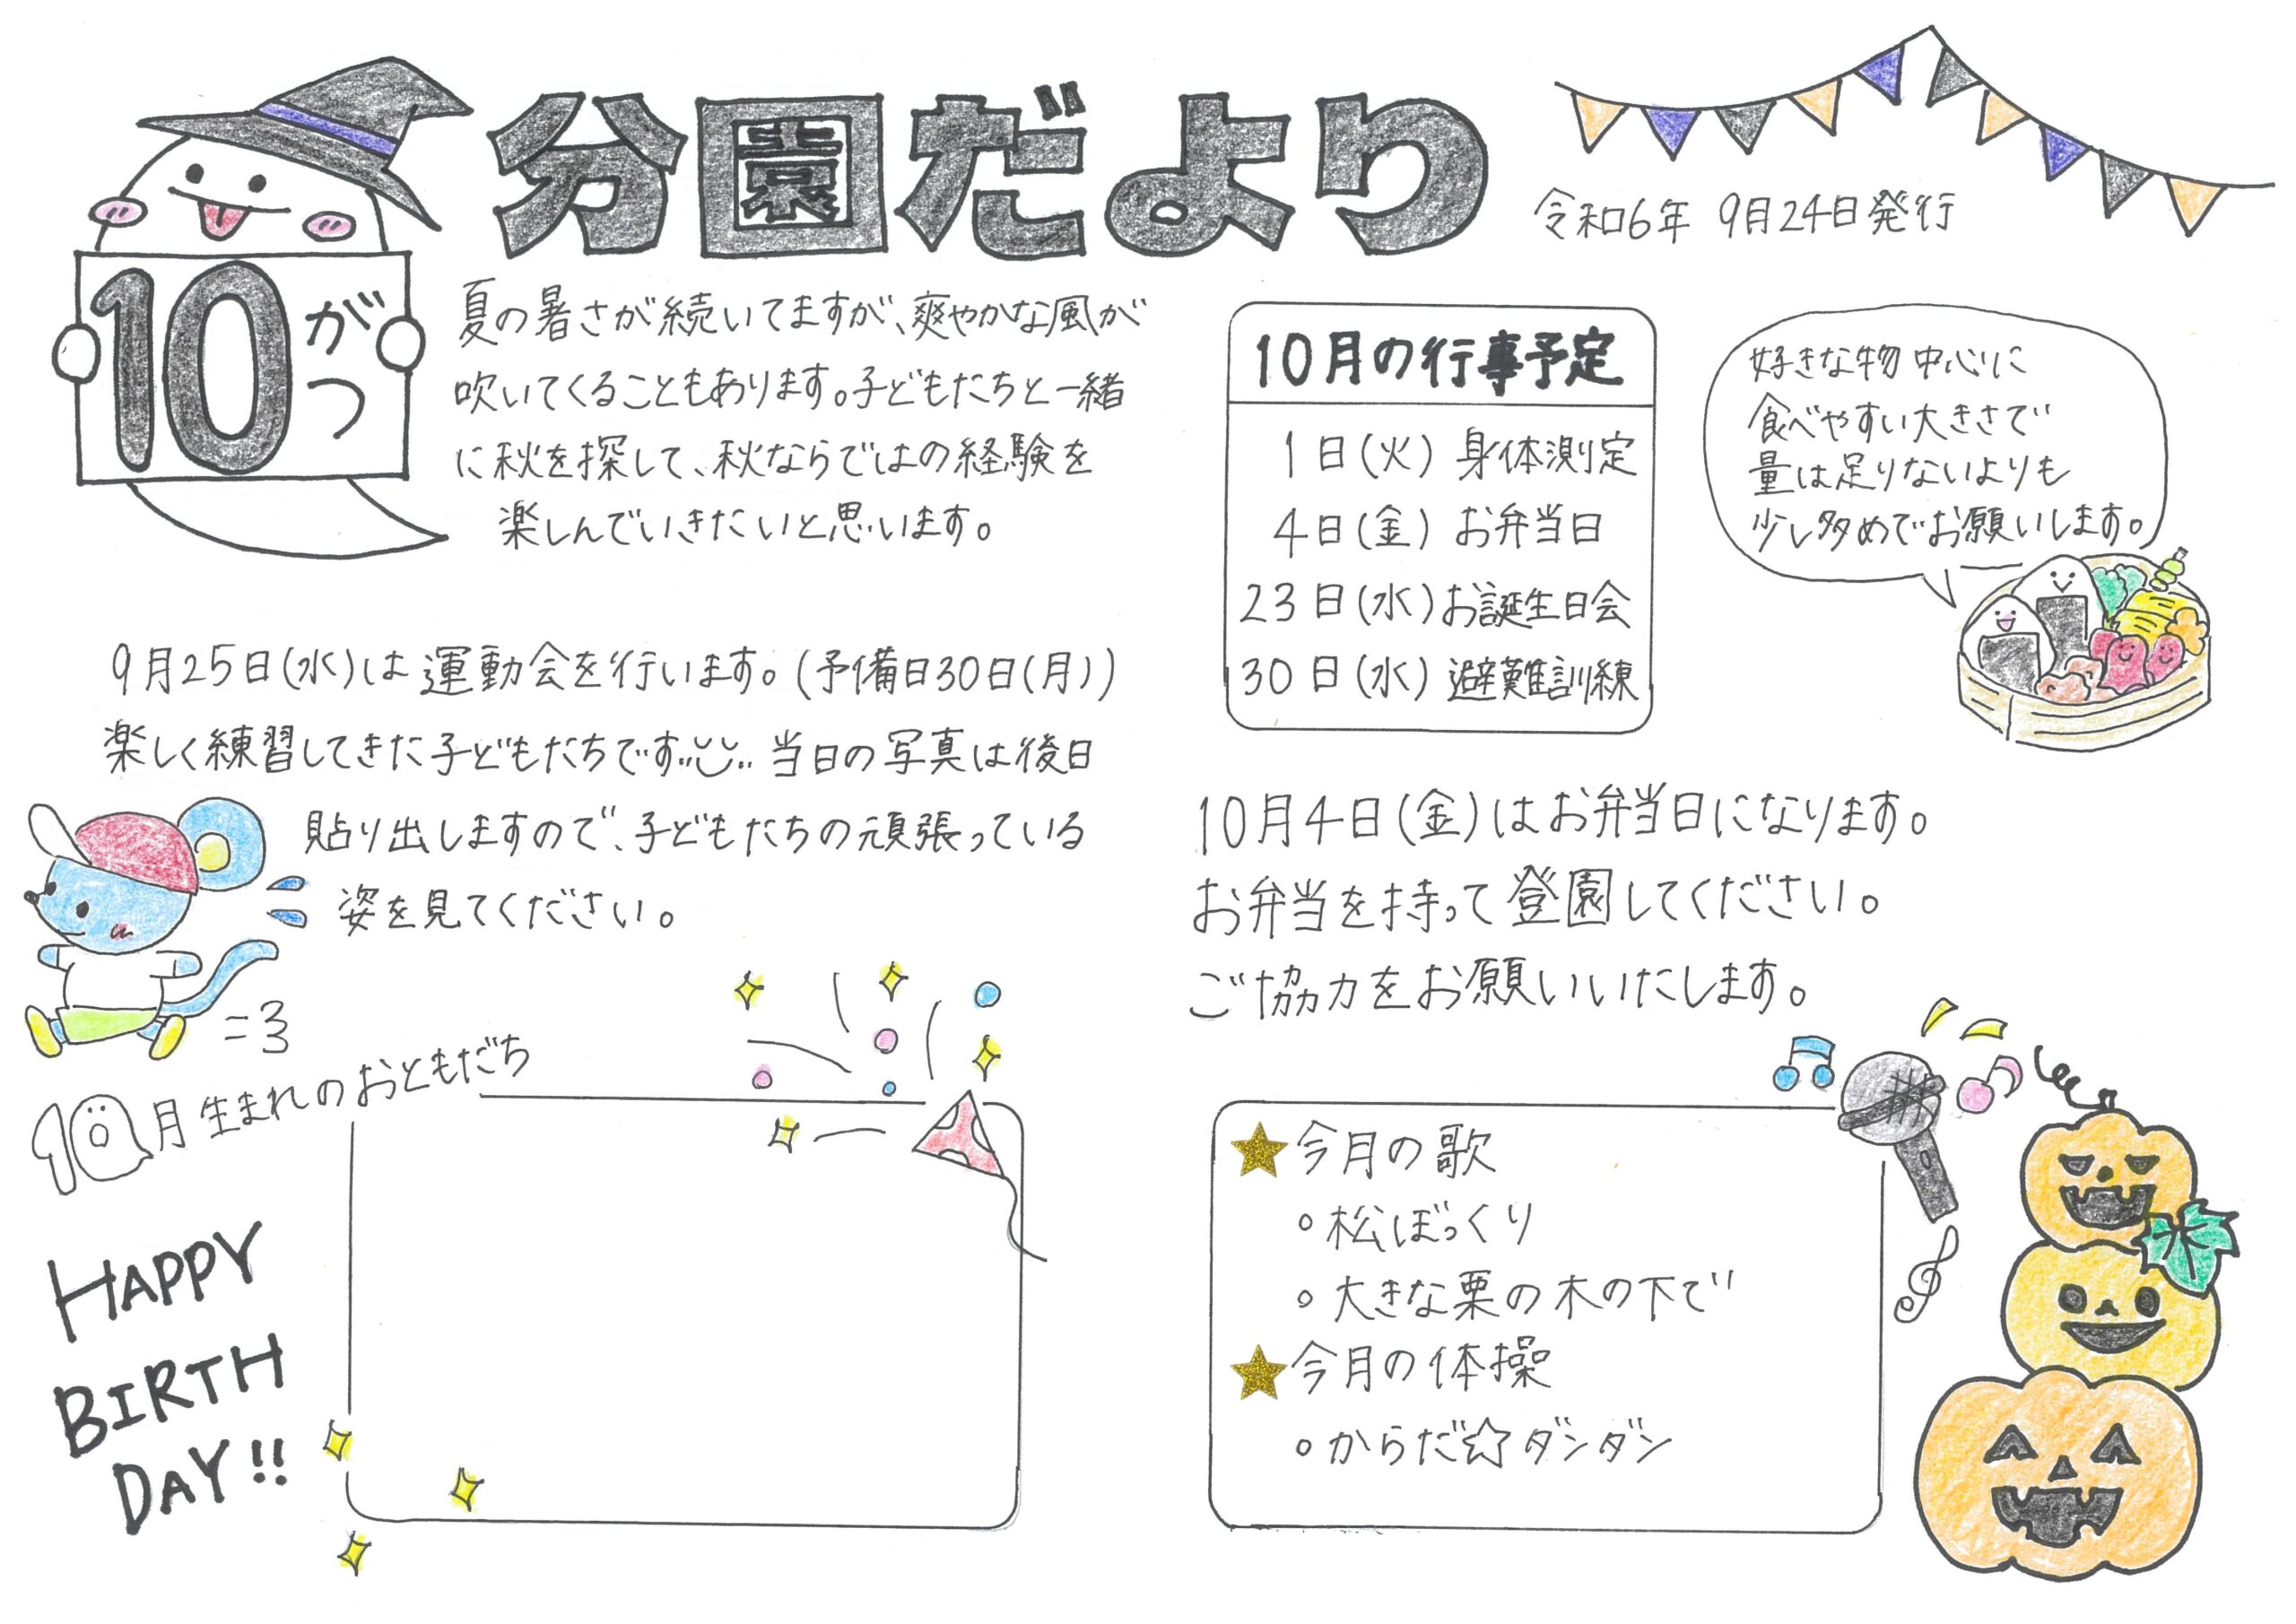 分園だより
令和6年 9月24日発行
10がつ
夏の暑さが続いてますが、爽やかな風が
吹いてくることもあります。子どもたちと一緒
に秋を探して、秋ならではの経験を
楽しんでいきたいと思います。
9月25日(水)は運動会を行います。(予備日30日(月))
楽しく練習してきた子どもたちです 当日の写真は後日
貼り出しますので、子どもたちの頑張っている
姿を見てください。
10月生まれのおともだち
HAPPY
BIRTH
DAY!!
10月の行事予定
1日(火) 身体測定
4日(金) お弁当日
23日(水) お誕生日会
30日(水) 避難訓練
好きな物中心に
食べやすい大きさで
量は足りないよりも
少し多めでお願いします。
10月4日(金)はお弁当日になります。
お弁当を持って登園してください。
ご協力をお願いいたします。
★今月の歌
○松ぼっくり
○大きな栗の木の下で
★今月の体操
○からだ☆ダンダン